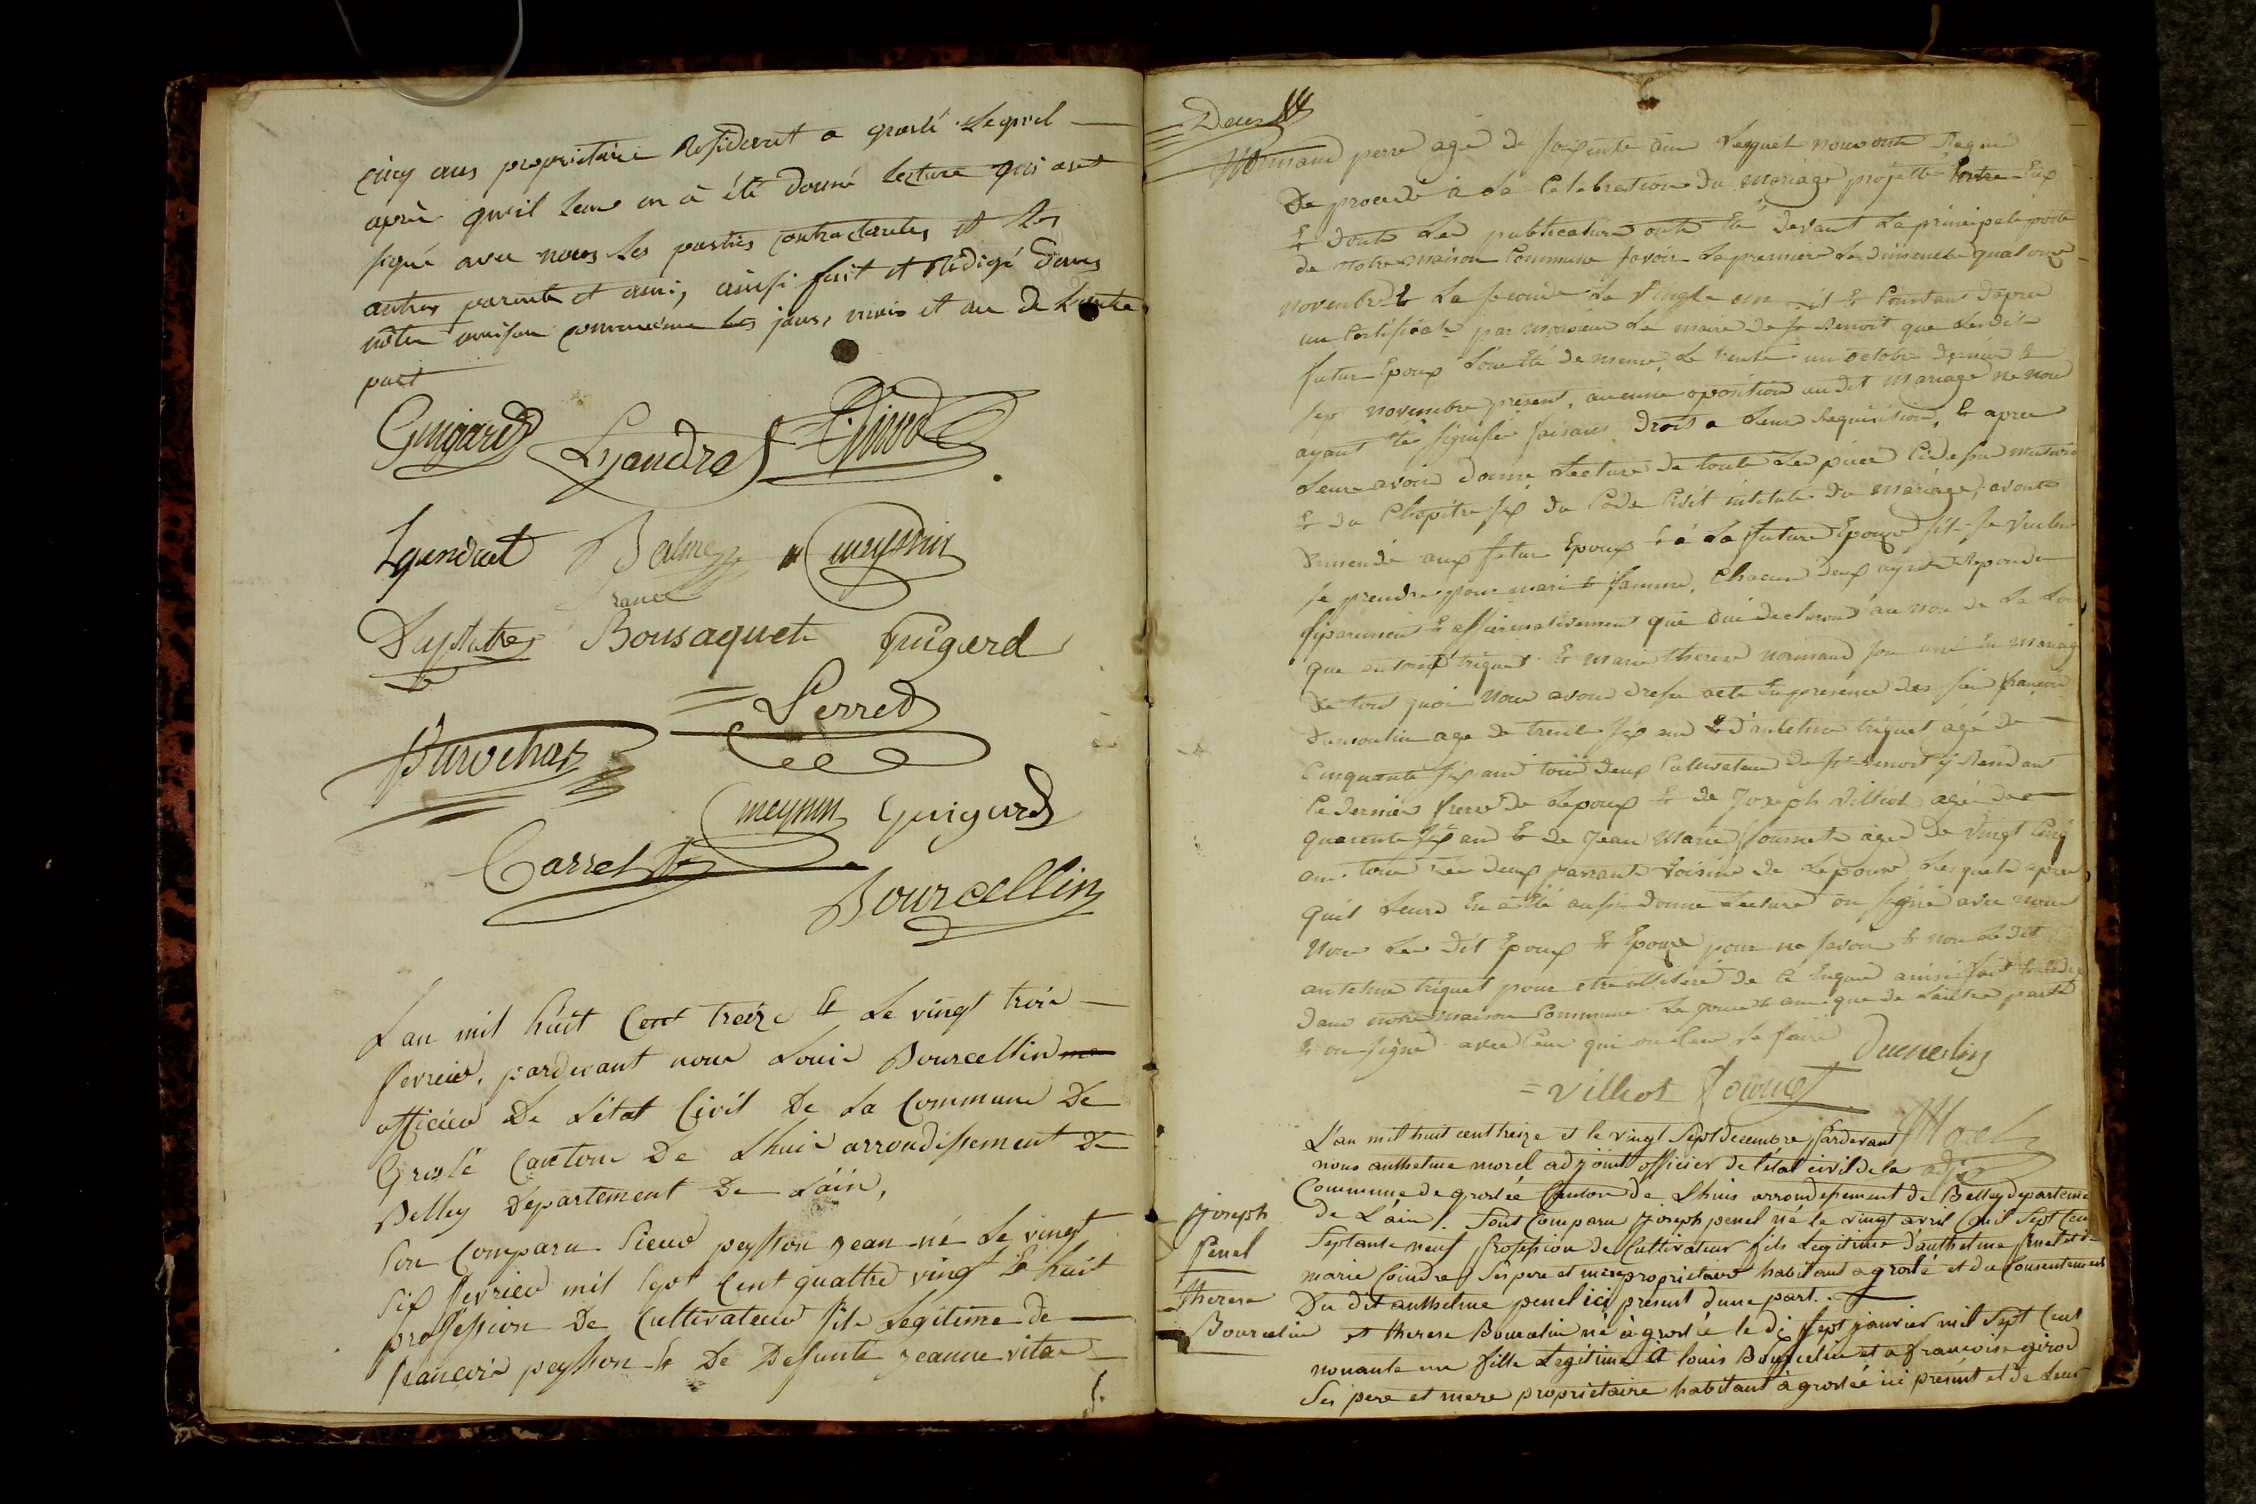 cinq ans propriétaire Résidant a groslé. Lequel
après quil leur en à été donné lecture qui ont
signé avec nous les parties contractantes et les
autres parents et amis, ainsi fait et Rédigé dans
nôtre maison commune les jours, mois et an de Lautre
part
Guigard Lyandras Girod
Lyandrat Balme meynin
franc
Duplatre Bousaquet Guigard
Perret
Purochas
meynin Guigard
Carrel
Bourcellin
Lan mil huit Cent treize Et Le vingt troie
fevrier, pardevant noue Louie Bourcellin
officier De L'état Civil De La Commune De
Groslé Canton De Lhuie arrondissement De
Belley Département De Láin,
Son Comparu Sieur peysson jean né Le vingt
Six fevrier mil Sept Cent quattre vingt Et huit
profession De Cultivateur fils Légitime de
francois peysson Et De Defunte jeanne vita
Deux
Normand perre agé de soixante ans Lesquels nous onts Requi
De procédé à La Celebration du Mariage projetté Entre Eux
Et donts Les publications onts Eté devant La principale porte
de Notre Maison Commune savoir La premiere Le dimenche quatorze
novembre Et La seconde Le vingt un Et Constant dapres
un Certificat par Monsieur Le maire de St Benoit que Lesdits
futur Epoux Léte de meme, Le trente un octobre dernier Et
Sept novembre présent, aucunne oposition audit Mariage ne nous
ayant été signifié faisant Droit a Leur Requisition, Et apres
Leurs avoir donné Lecture de toute Les piece Cidessu
Et du Chapitre six du Code Civil intitulé du Mariage, avons
demendé aux futur Epoux Et à La future Epouse sils se veulent
se prendre pour mari Et famme, Chacun deux ayant Répondu
séparement Et affirmativement que oui declarons au nom de La Loi
que antoine triquet Et marie therese normand son uni En mariage
de tout quoi Nous avons dressé acte En présence des sieur francois
Dumoulin age de trente six ans Et d'antelme triquet âgé de
Cinquante six ans tous deux Cultivateur de St Benoit y Residant
Ce dernier frere de Lepoux Et de Joseph Villiot agé de
quarente six ans Et de Jean Marie fournet agé de vingt Cinq
ans tous Les deux voisins de Lepouse Lesquels apres
quil Leurs En à été aussi donné Lecture on signé avec nous
Non Les dit Epoux Et Epouse pour ne savoir Et non Le dit
antelme triquet pour
dans notre maison Commune Le jour Et an que de Lautre parts
Et on signé avec Ceux qui on sceu Le faire Dumoulin
Villiot fournet
Morel
adjt
L'an mil huit cent treize et le vingt Sept decembre pardevant
nous anthelme morel adjoint officier de l'état civil de la
Commune de groslée Canton de Lhuis arrondissement de Belley departeme
de L'ain. Sont Comparu joseph penel né le vingt avril mil Sept Cent
Septante neuf profession de Cultivateur fils Legitime d'anthelme penel et de
marie Coindre Ses pere et mere proprietaire habitant a groslé et du Consentement
Du dit anthelme penel ici présent d'une part.
et therese Bourcelin né à groslée le dix sept janvier mil sept Cent
nonante un fille Legitime à louis Bourcelin et a francoise girod
Ses pere et mere proprietaire habitant à groslée ici présent et de Leur
joseph
Penel
therese
Bourcelin